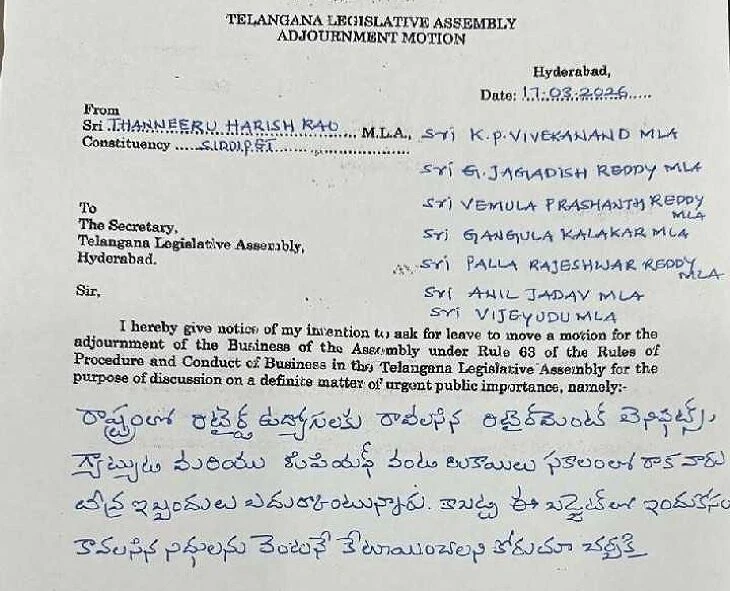 TELANGANA LEGISLATIVE ASSEMBLY
ADJOURNMENT MOTION
Hyderabad,
Date: 17.03.2026
From
Sri THANNEERU HARISH RAO M.L.A.,
Constituency SIDDIPET
Sri K.P. VIVEKANAND MLA
Sri G. JAGADISH REDDY MLA
Sri VEMULA PRASHANTH REDDY MLA
Sri GANGULA KALAKAR MLA
Sri PALLA RAJESHWAR REDDY MLA
Sri ANIL JADAV MLA
Sri VIJEYUDU MLA
To
The Secretary,
Telangana Legislative Assembly,
Hyderabad.
Sir,
I hereby give notice of my intention to ask for leave to move a motion for the
adjournment of the Business of the Assembly under Rule 63 of the Rules of
Procedure and Conduct of Business in the Telangana Legislative Assembly for the
purpose of discussion on a definite matter of urgent public importance, namely:-
రాష్ట్రంలో రిటైర్డ్ ఉద్యోగులకు రావలసిన రిటైర్‌మెంట్ బెనిఫిట్స్,
గ్రాట్యుటి మరియు వంటి బకాయిలు సకాలంలో రాక వారు
తీవ్ర ఇబ్బందులు ఎదుర్కొంటున్నారు. కాబట్టి ఈ బడ్జెట్‌లో ఇందుకోసం
కావలసిన నిధులను వెంటనే కేటాయించాలని కోరుతూ చర్చకై